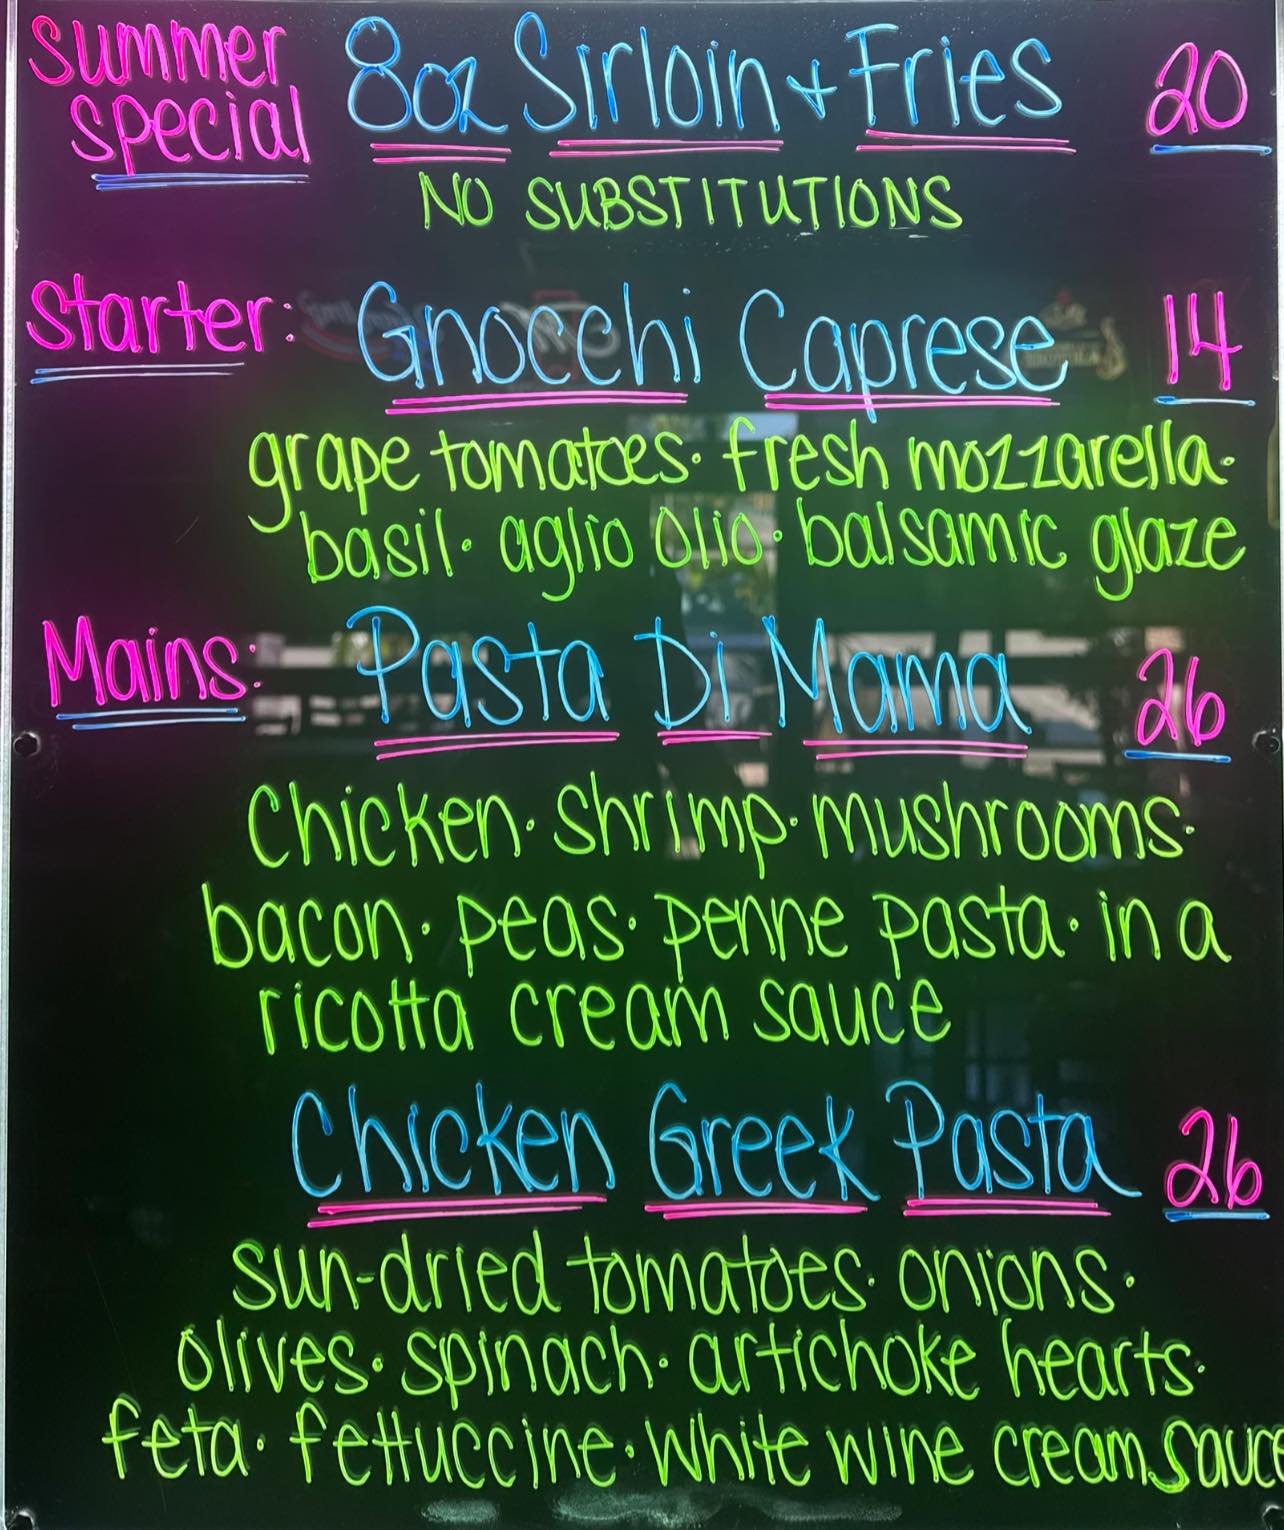 Summer special 8oz Sirloin + Fries 20
NO SUBSTITUTIONS
Starter: Gnocchi Caprese 14
grape tomatoes · fresh mozzarella ·
basil · aglio olio · balsamic glaze
Mains: Pasta Di Mama 26
Chicken · shrimp · mushrooms ·
bacon · peas · penne pasta · in a
ricotta cream sauce
Chicken Greek Pasta 26
sun-dried tomatoes · onions ·
olives · spinach · artichoke hearts ·
feta · fettuccine · white wine cream sauce